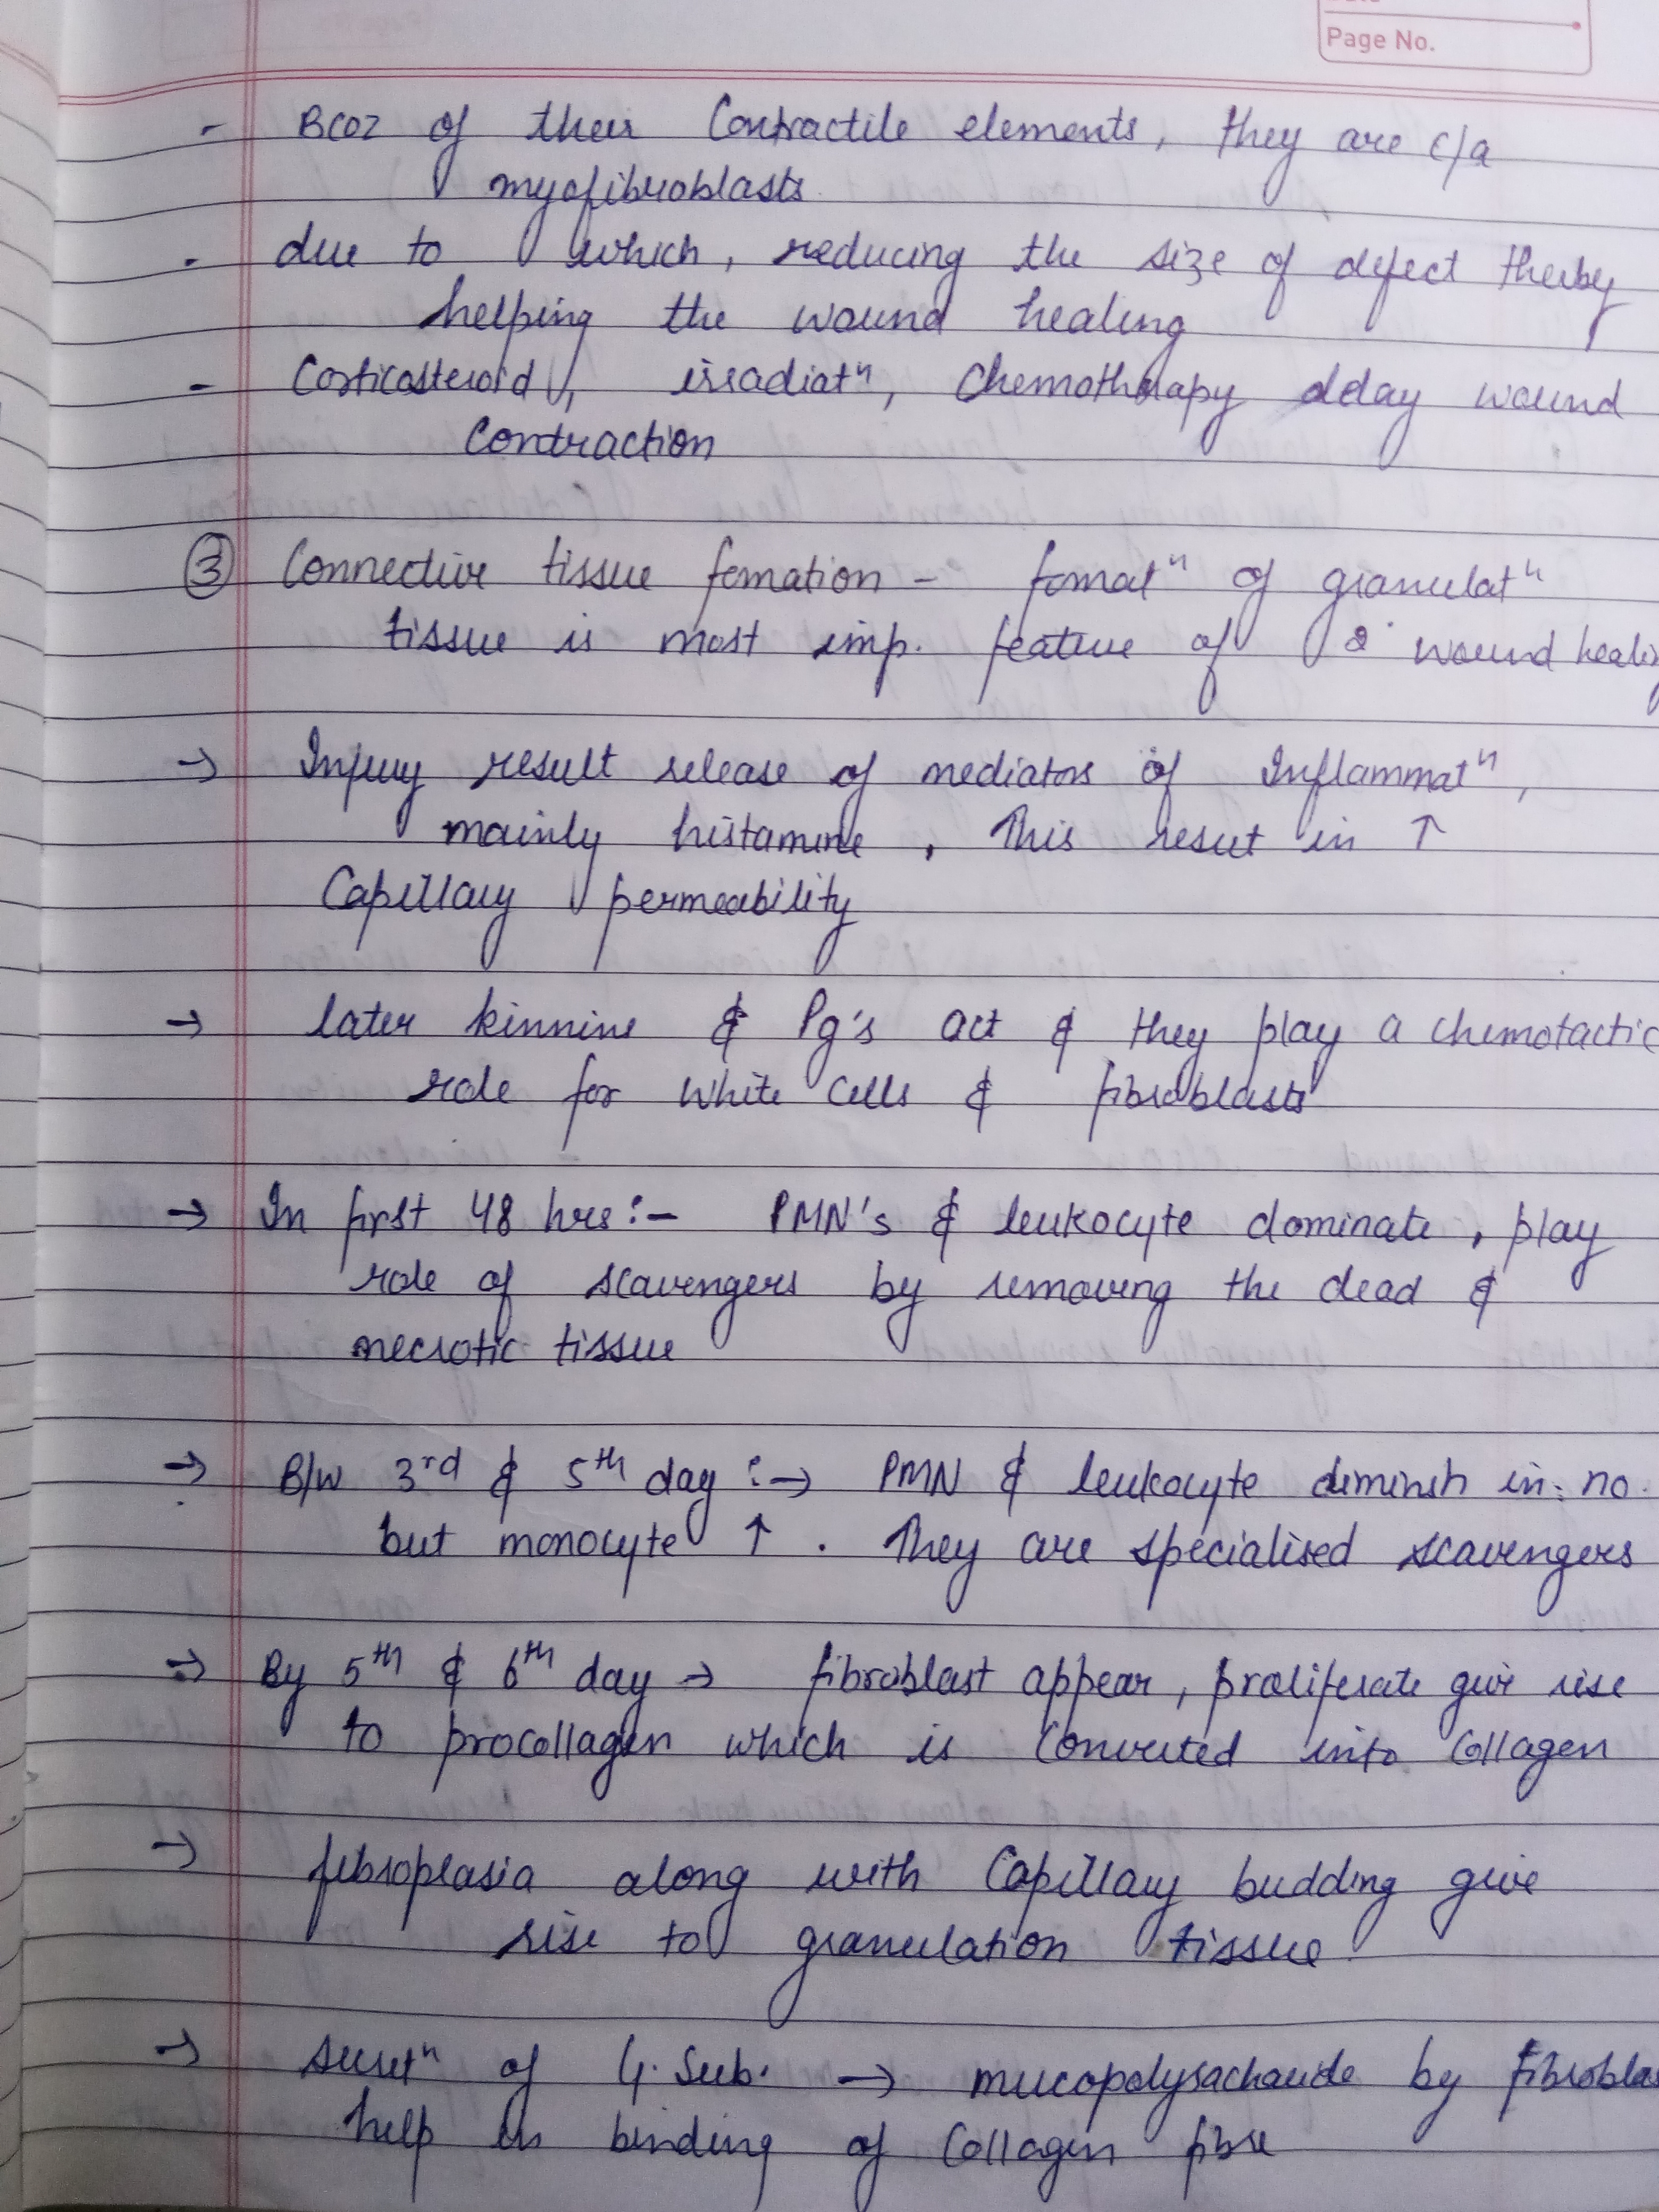 Page No.
- BCOZ of their Contractile elements, they are c/a
myofibroblasts
- due to which, reducing the size of defect therby
helping the wound healing
- Corticosteroid, irradiatⁿ, Chemotherapy delay wound
Contraction
③ Connective tissue fomation - fomatⁿ of granulatⁿ
tissue is most imp. feature of 2° wound healin
→ Injury result release of mediators of Inflammatⁿ,
mainly histamine, This result in ↑
Capillary permeability
→ later kinnins & Pg's act & they play a chemotactic
role for white cells & fibroblasts
→ In first 48 hrs :- PMN's & leukocyte dominate, play
role of scavengers by removing the dead &
necrotic tissue
→ B/W 3rd & 5th day :→ PMN & leukocyte diminsh in no.
but monocyte ↑ . They are specialised scavengers
→ By 5th & 6th day → fibroblast appear, proliferate give rise
to procollagen which is Converted into Collagen
→ fibroplasia along with Capillary budding give
rise to granulation tissue
→ secretⁿ of G. Sub. → mucopolysacharide by fibroblas
help in binding of Collagen fibre